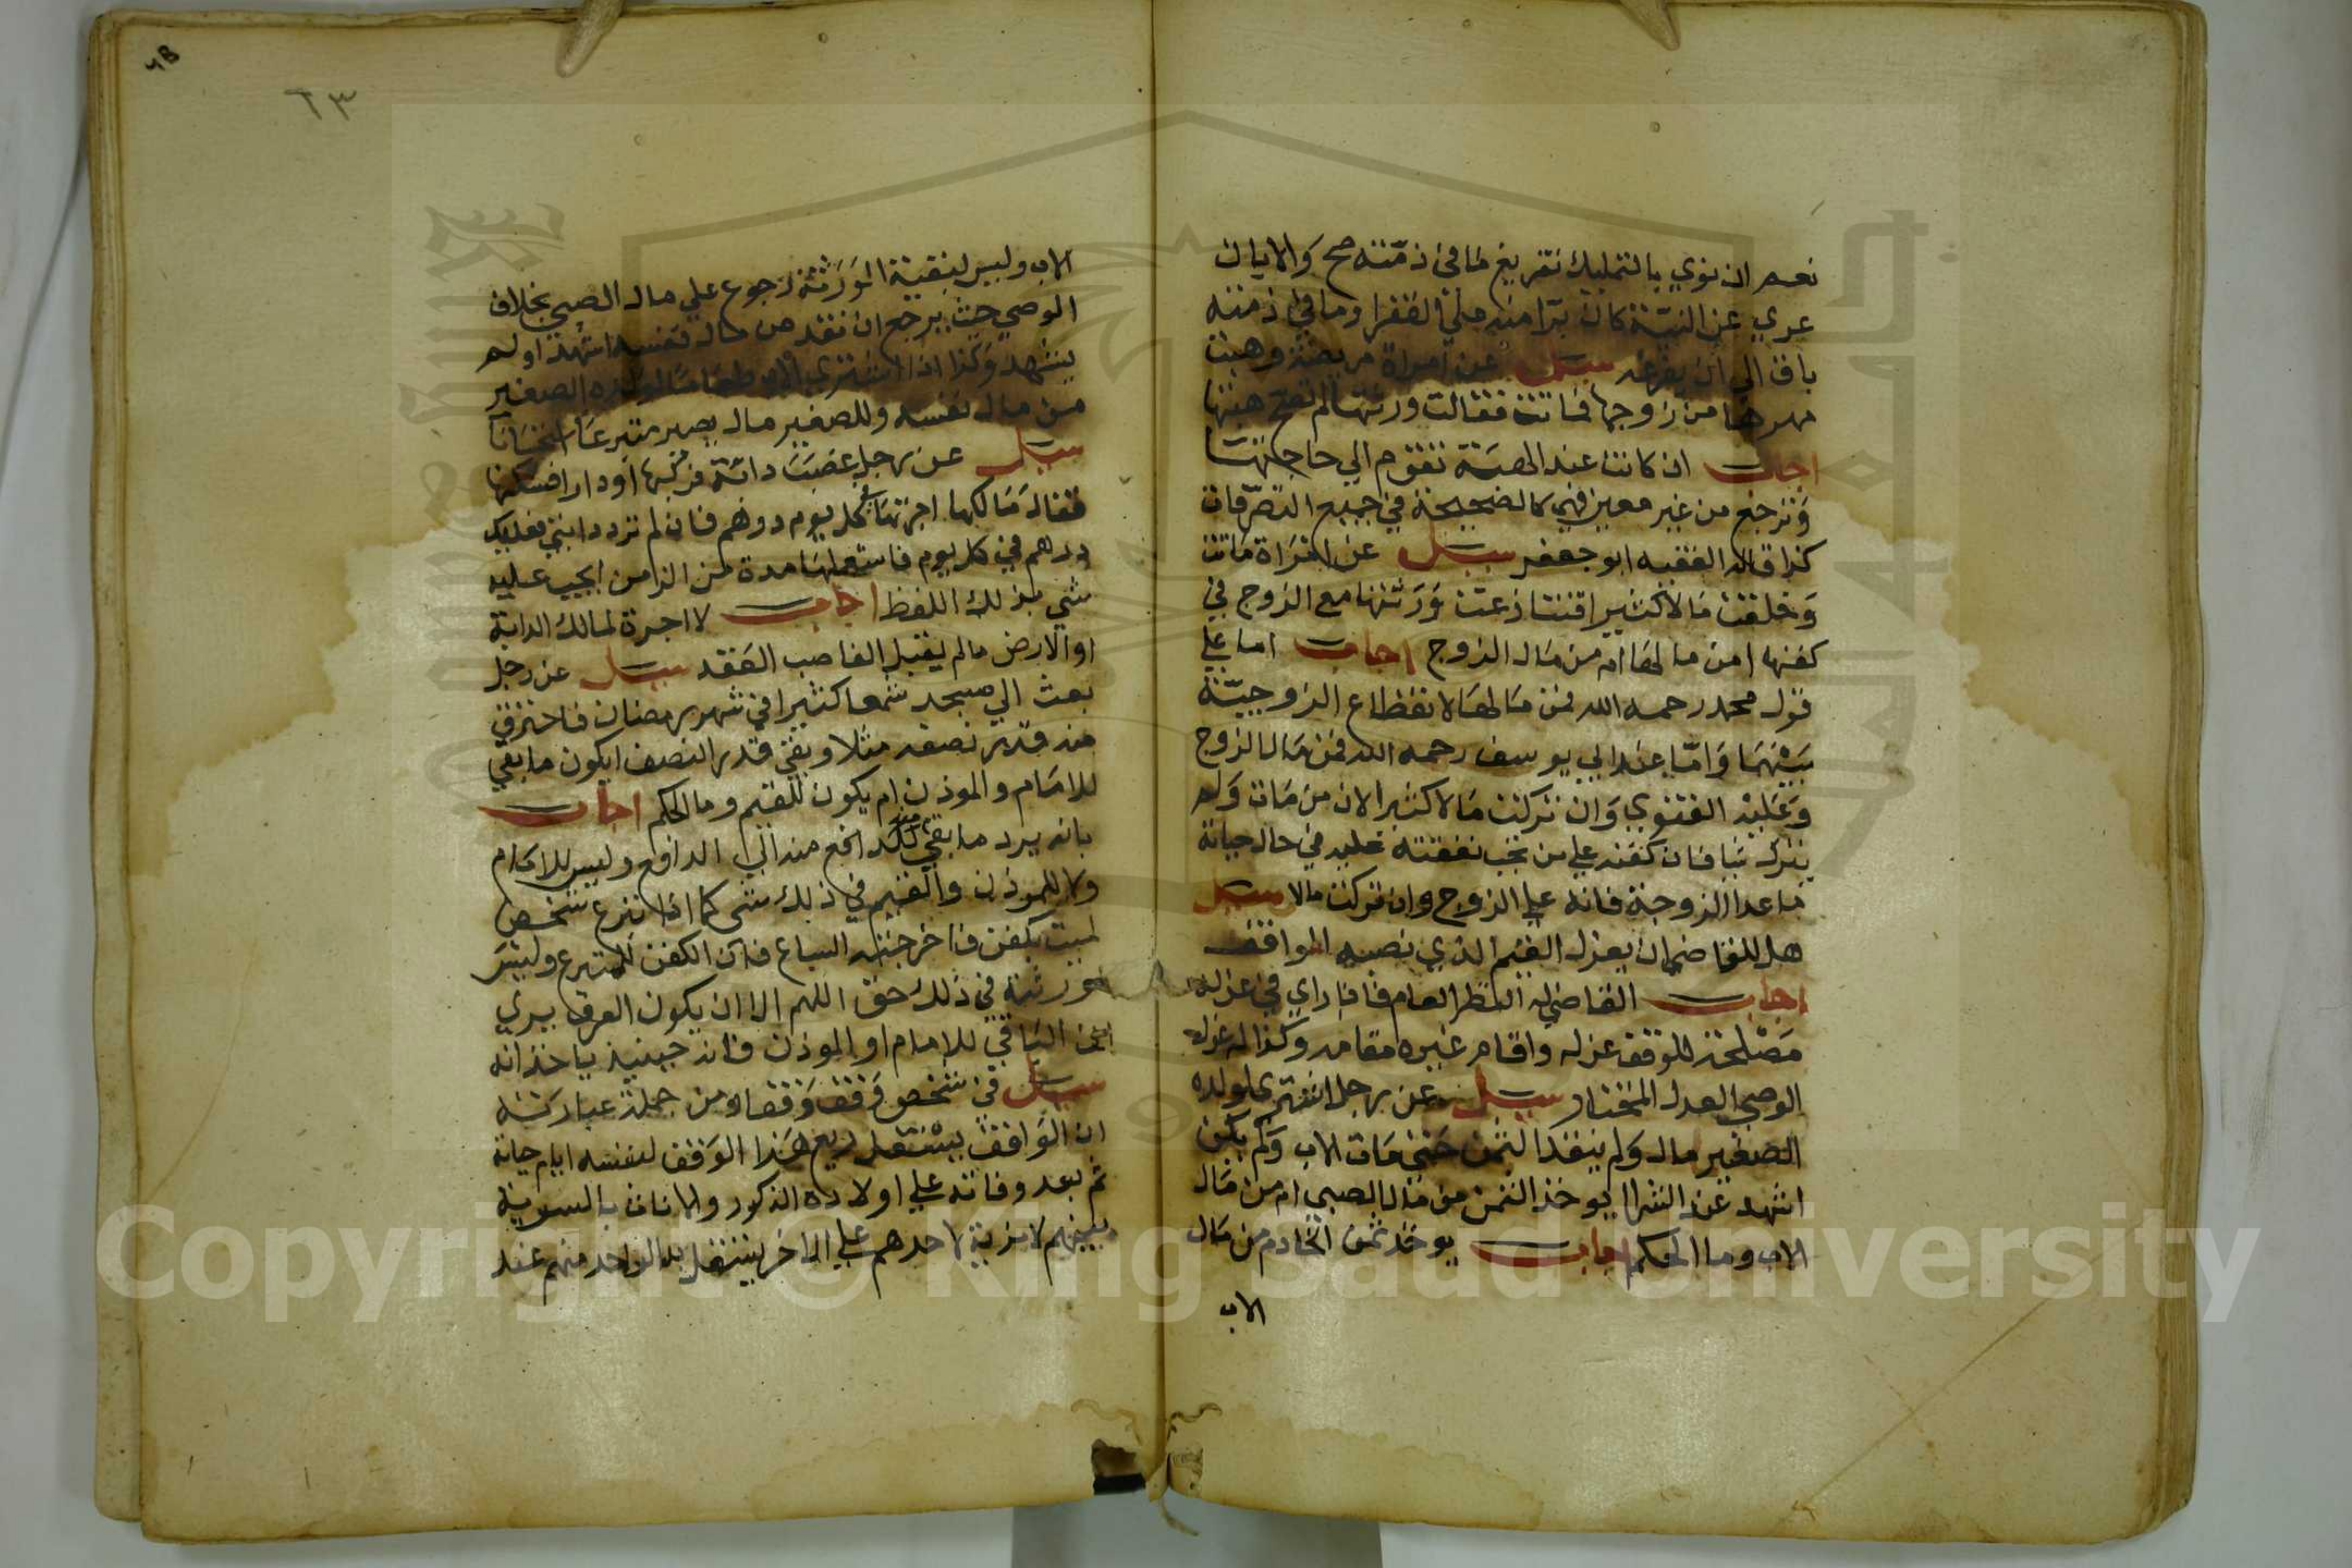 نعم ان نوي بالتمليك تفريغ ما في ذمته صح والا بان
عري عن النية كان برا منه علي الفقرا وما في ذمته
باق الي ان يفرغه سيل عن امراة مريضة وهبت
مهرها من زوجها فماتت فقالت ورثتها لم تصح هبتها
اجاب ان كانت عند الهبة تقوم الي حاجتها
وترجع من غير معين فهي كالصحيحة في جميع التصرفات
كذا قاله الفقيه ابو جعفر سيل عن امراة ماتت
وخلفت مالا كثيرا فتنازعت ورثتها مع الزوج في
كفنها امن مالها ام من مال الزوج اجاب اما علي
قول محمد رحمه الله فمن مالها لانقطاع الزوجية
بينهما واما عند ابي يوسف رحمه الله فمن مال الزوج
وعليه الفتوي وان تركت مالا كثيرا لان من مات ولم
يترك شيا فان كفنه علي من تجب نفقته عليه في حال حياته
ما عدا الزوجة فانه علي الزوج وان تركت مالا سيل
هل للقاضي ان يعزل القيم الذي نصبه الواقف
اجاب القاضي له النظر العام فاذا راي في عزله
مصلحة للوقف عزله واقام غيره مقامه وكذا له عزل
الوصي العدل المختار سيل عن رجل اشتري لولده
الصغير مال ولم ينقد الثمن حتي مات الاب ولم يكن
اشهد عند الشرا ايوخذ الثمن من مال الصبي ام من مال
الاب وما الحكم اجاب يوخذ ثمن الخادم من مال
الاب
٦٣
الاب وليس لبقية الورثة رجوع علي مال الصبي بخلاف
الوصي حيث يرجع ان نقد من مال نفسه اشهد او لم
يشهد وكذا اذا اشتري الاب طعاما لولده الصغير
من مال نفسه وللصغير مال يصير متبرعا استحسانا
سيل عن رجل غصب دابة فركبها او دارا فسكنها
فقال مالكها اجرتها كل يوم درهم فان لم ترد دابتي فعليك
درهم في كل يوم فاستعملها مدة من الزمن ايجب عليه
شي بذلك اللفظ اجاب لا اجرة لمالك الدابة
او الارض ما لم يقبل الغاصب العقد سيل عن رجل
بعث الي مسجد شمعا كثيرا في شهر رمضان فاحترق
منه قدر نصفه مثلا وبقي قدر النصف ايكون ما بقي
للامام والموذن ام يكون للقيم وما الحكم اجاب
بانه يرد ما بقي منه الي الدافع وليس للامام
ولا للموذن والقيم في ذلك شي كما اذا تبرع شخص
لميت بكفن فاخرجته السباع فان الكفن للمتبرع وليس
لورثته في ذلك حق اللهم الا ان يكون العرف يري
الباقي للامام او الموذن فانه حينيذ ياخذانه
سيل في شخص وقف وقفا ومن جملة عبارته
ان الواقف يستغل ريع هذا الوقف لنفسه ايام حياته
ثم بعد وفاته علي اولاده الذكور والاناث بالسوية
بينهم لا مزية لاحدهم علي الاخر يستقل به الواحد منهم عند
Copyright © King Saud University